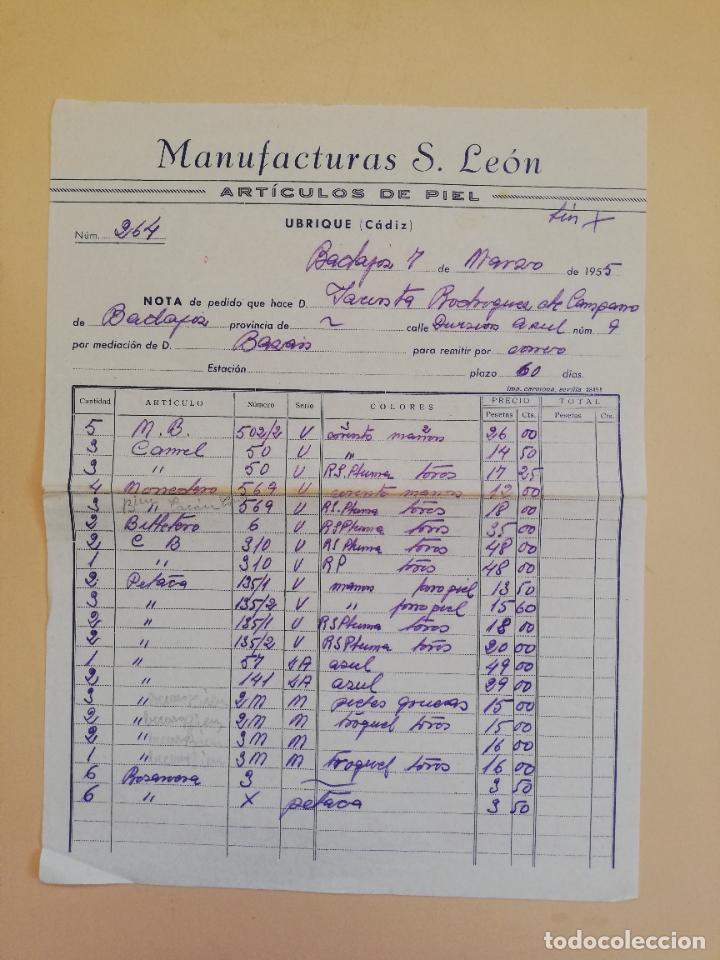 Manufacturas S. León
ARTÍCULOS DE PIEL
UBRIQUE (Cádiz)
Núm. 264
Badajoz 7 de Marzo de 1955
NOTA de pedido que hace D. Jacinta Rodriguez de Campano
de Badajoz provincia de ~ calle Division Azul núm 9
por mediación de D. Bazan para remitir por correo
Estación plazo 60 días.
Imp. carmona, sevilla
Cantidad ARTÍCULO Número Serie COLORES PRECIO TOTAL
Pesetas Cts. Pesetas Cts.
5 M. B. 502/2 V corinto maños 26 00
3 Camel 50 V " 14 50
3 " 50 V R.S. Pluma toros 17 25
4 Monedero 569 V corinto manos 12 00
3 " 569 V R.S. Pluma toros 18 00
2 Billetero 6 V R.S Pluma toros 35 00
2 C B 310 V R.S Pluma toros 48 00
1 " 310 V R P toros 48 00
2 Petaca 135/1 V manos poropiel 13 50
3 " 135/2 V " poropiel 15 60
2 " 135/1 V R.S Pluma toros 18 00
2 " 135/2 V R.S Pluma toros 20 00
1 " 57 4A azul 49 00
2 " 141 4A azul 29 00
3 " 2M M pieles gruesas 15 00
2 " 2M M troquel toros 15 00
2 " 3M M 16 00
1 " 3M M troquel toros 16 00
6 3 3 50
6 " X petaca 3 50
todocoleccion
todocoleccion.net